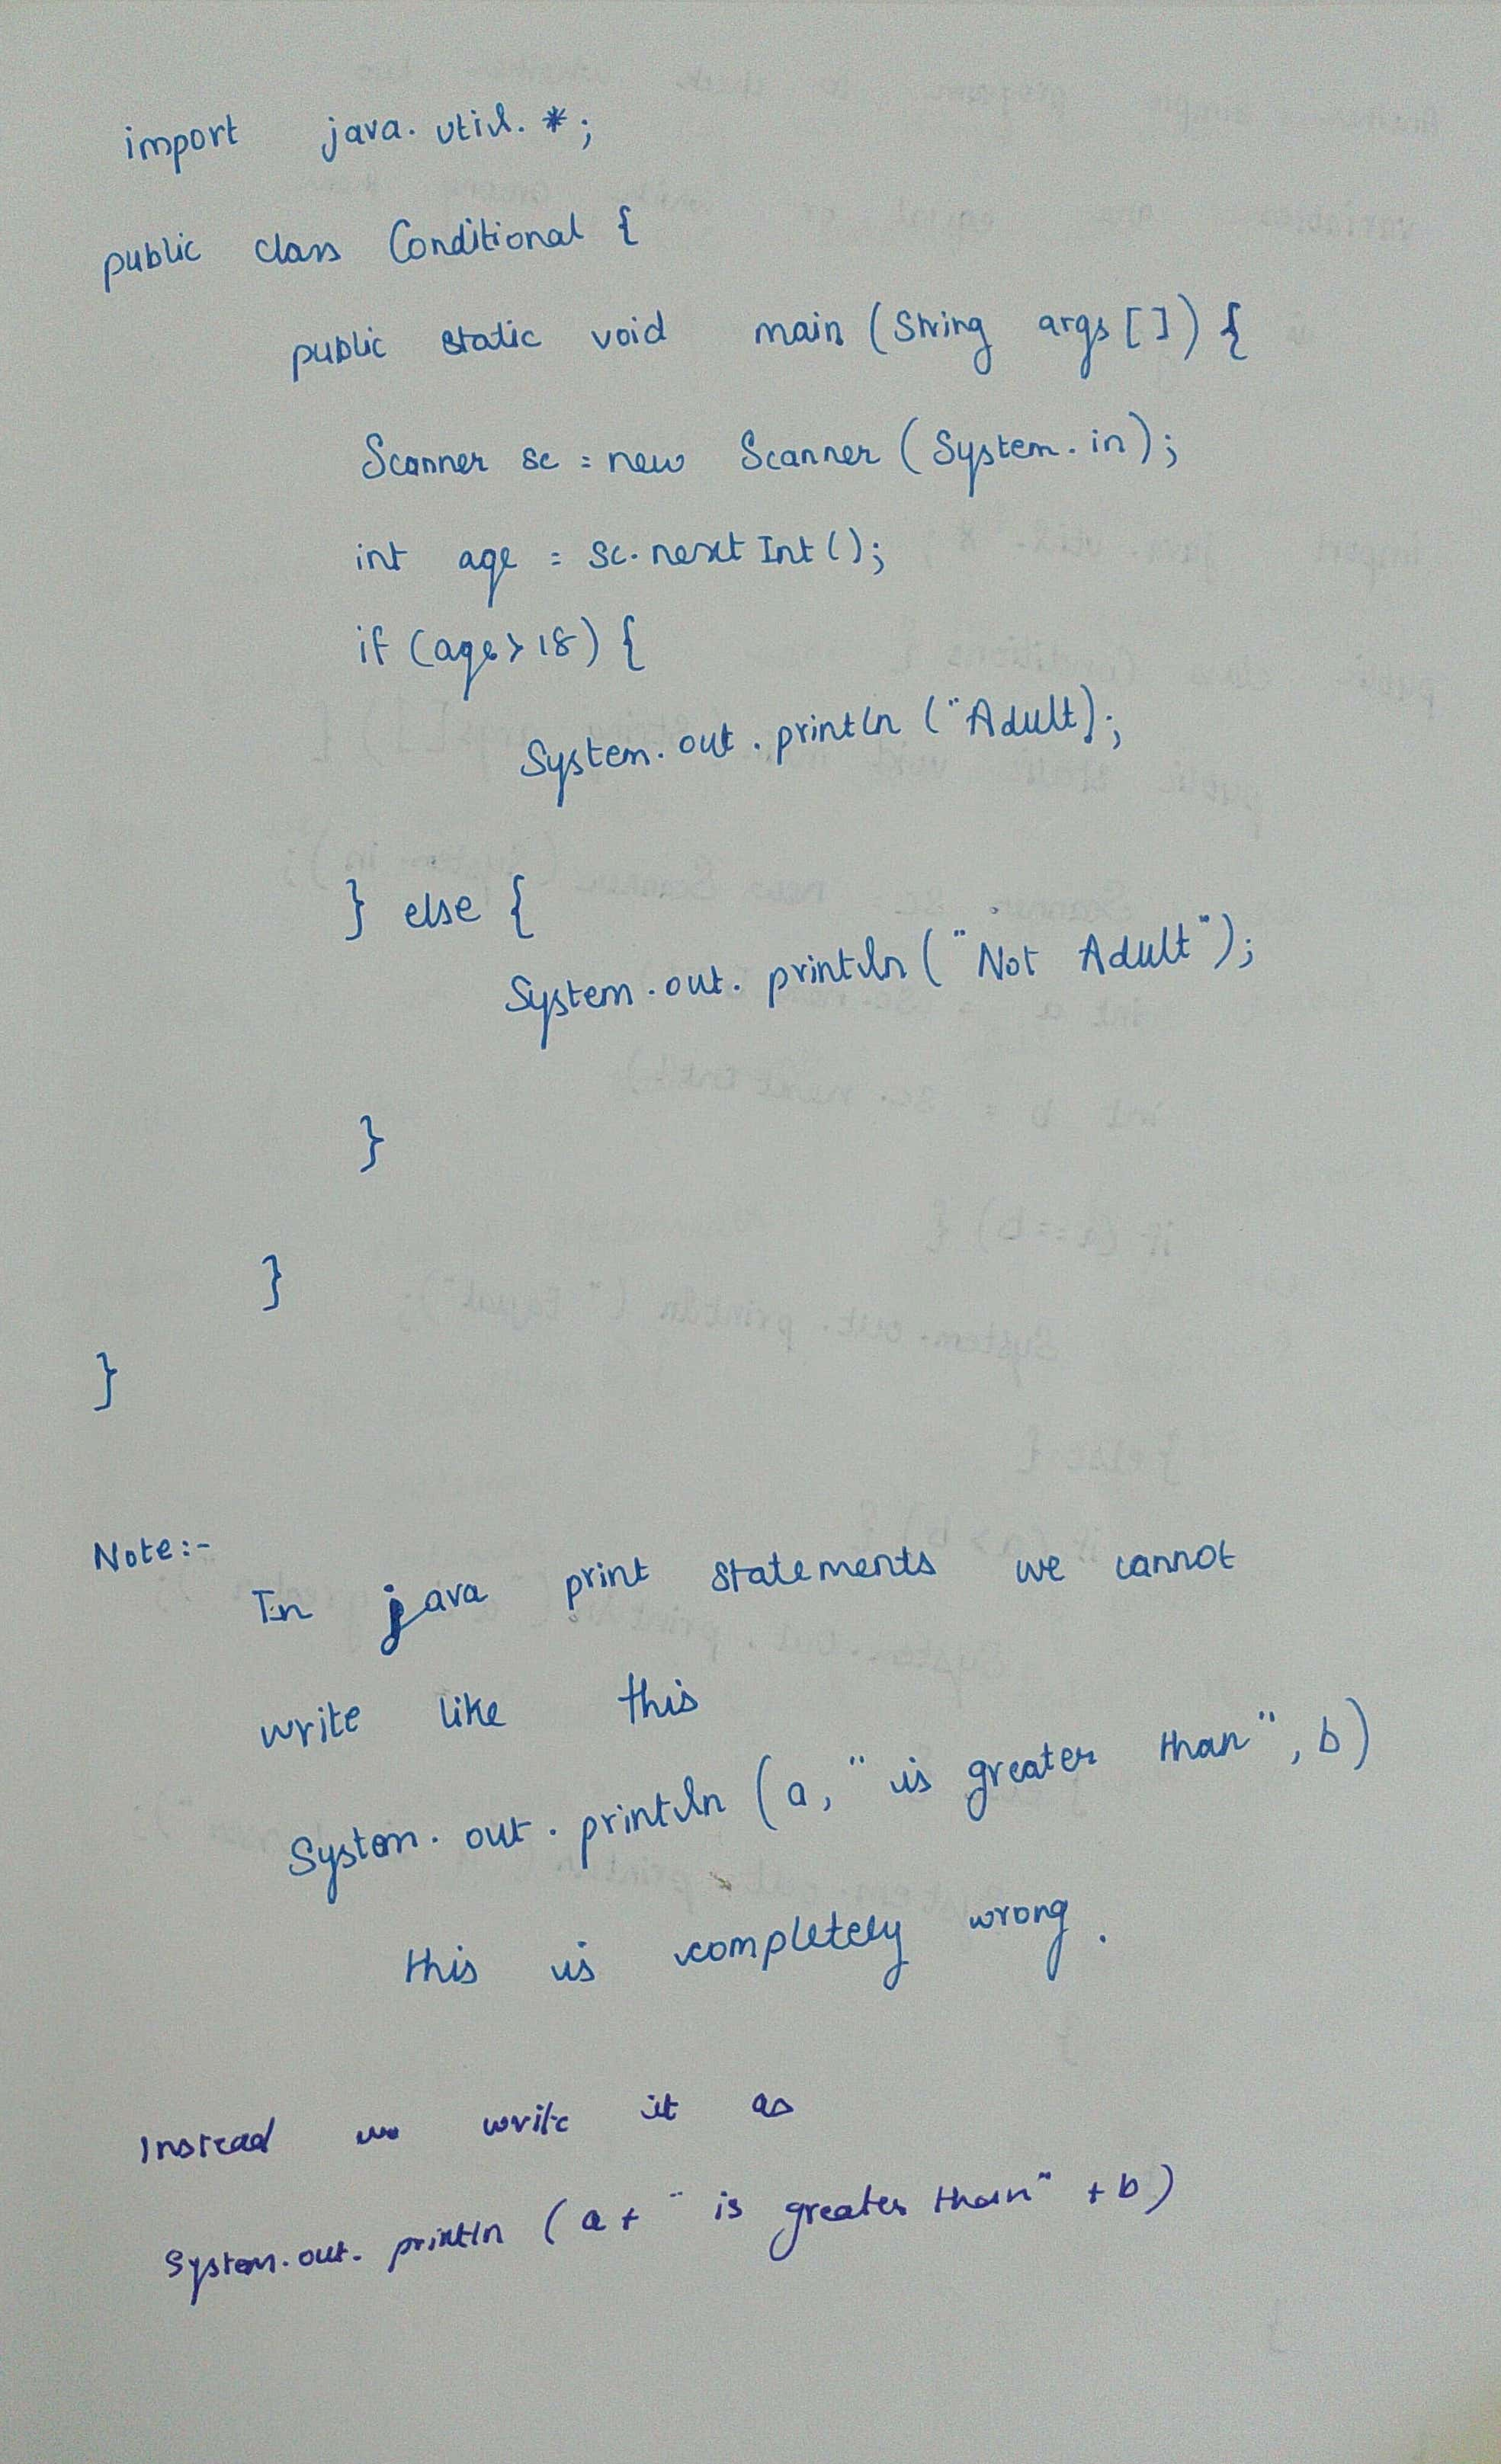 import java.util.*;
public class Conditional {
public static void main (String args []) {
Scanner sc = new Scanner (System.in);
int age = sc.nextInt();
if (age > 18) {
System.out.println ("Adult);
} else {
System.out.println ("Not Adult");
}
}
}
Note:-
In java print statements we cannot
write like this
System.out.println (a, "is greater than", b)
this is completely wrong.
Instead we write it as
System.out.println (a + " is greater than" + b)